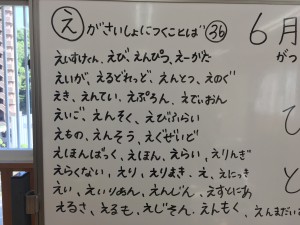 え がさいしょにつくことば 36
えいすけくん、えび、えんぴつ、えーがた
えいが、えるどれっど、えんとつ、えのぐ
えき、えんてい、えぷろん、えでぃおん
えいご、えんそく、えびふらい
えもの、えんそう、えぐぜいど
えほんばっく、えほん、えらい、えりんぎ
えらくない、えり、えりまき、え、えにっき
えい、えいりあん、えんじん、えすとにあ
えるさ、えるも、えじそん、えんもく、えんまだい
6月
がつ
ひ
と